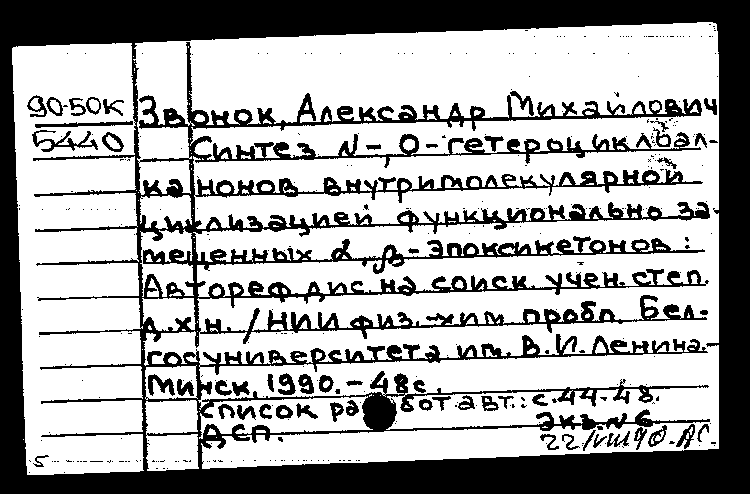 90-50К Звонок, Александр Михайлович
5440 Синтез N-, O-гетероциклоал-
канонов внутримолекулярной
циклизацией функционально за-
мещенных α, β-эпоксикетонов:
Автореф. дис. на соиск. учен. степ.
д.х.н. / НИИ физ.-хим. пробл. Бел-
госуниверситета им. В.И.Ленина.-
Минск, 1990. - 48с.
Список работ авт.: с.44-48.
ДСП. Экз. N 6
22/VIII 90. АС.
5